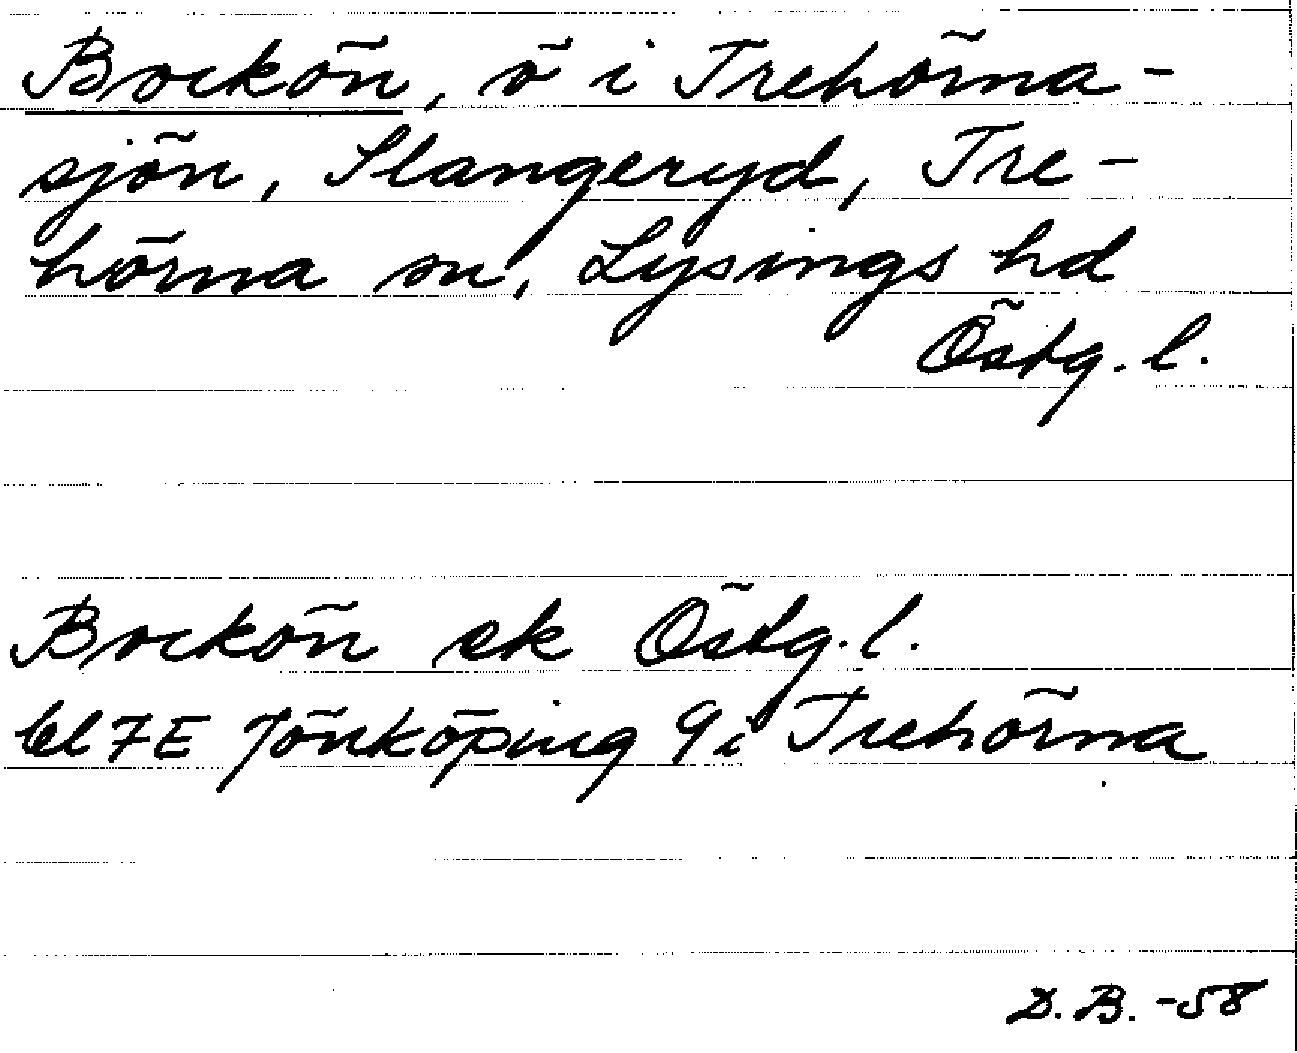 Bockön, ö i Trehörna-
sjön, Slangeryd, Tre-
hörna sn, Lysings hd
Östg. l.
Bockön ek Östg. l.
bl 7E Jönköping 9i Trehörna
D.B. -58